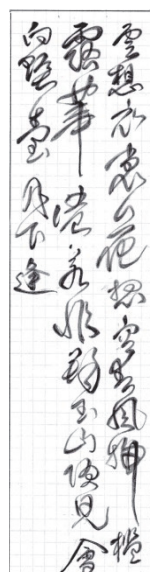 雲想衣裳花想容春風拂檻
露華濃若非群玉山頭見會
向瑤臺月下逢